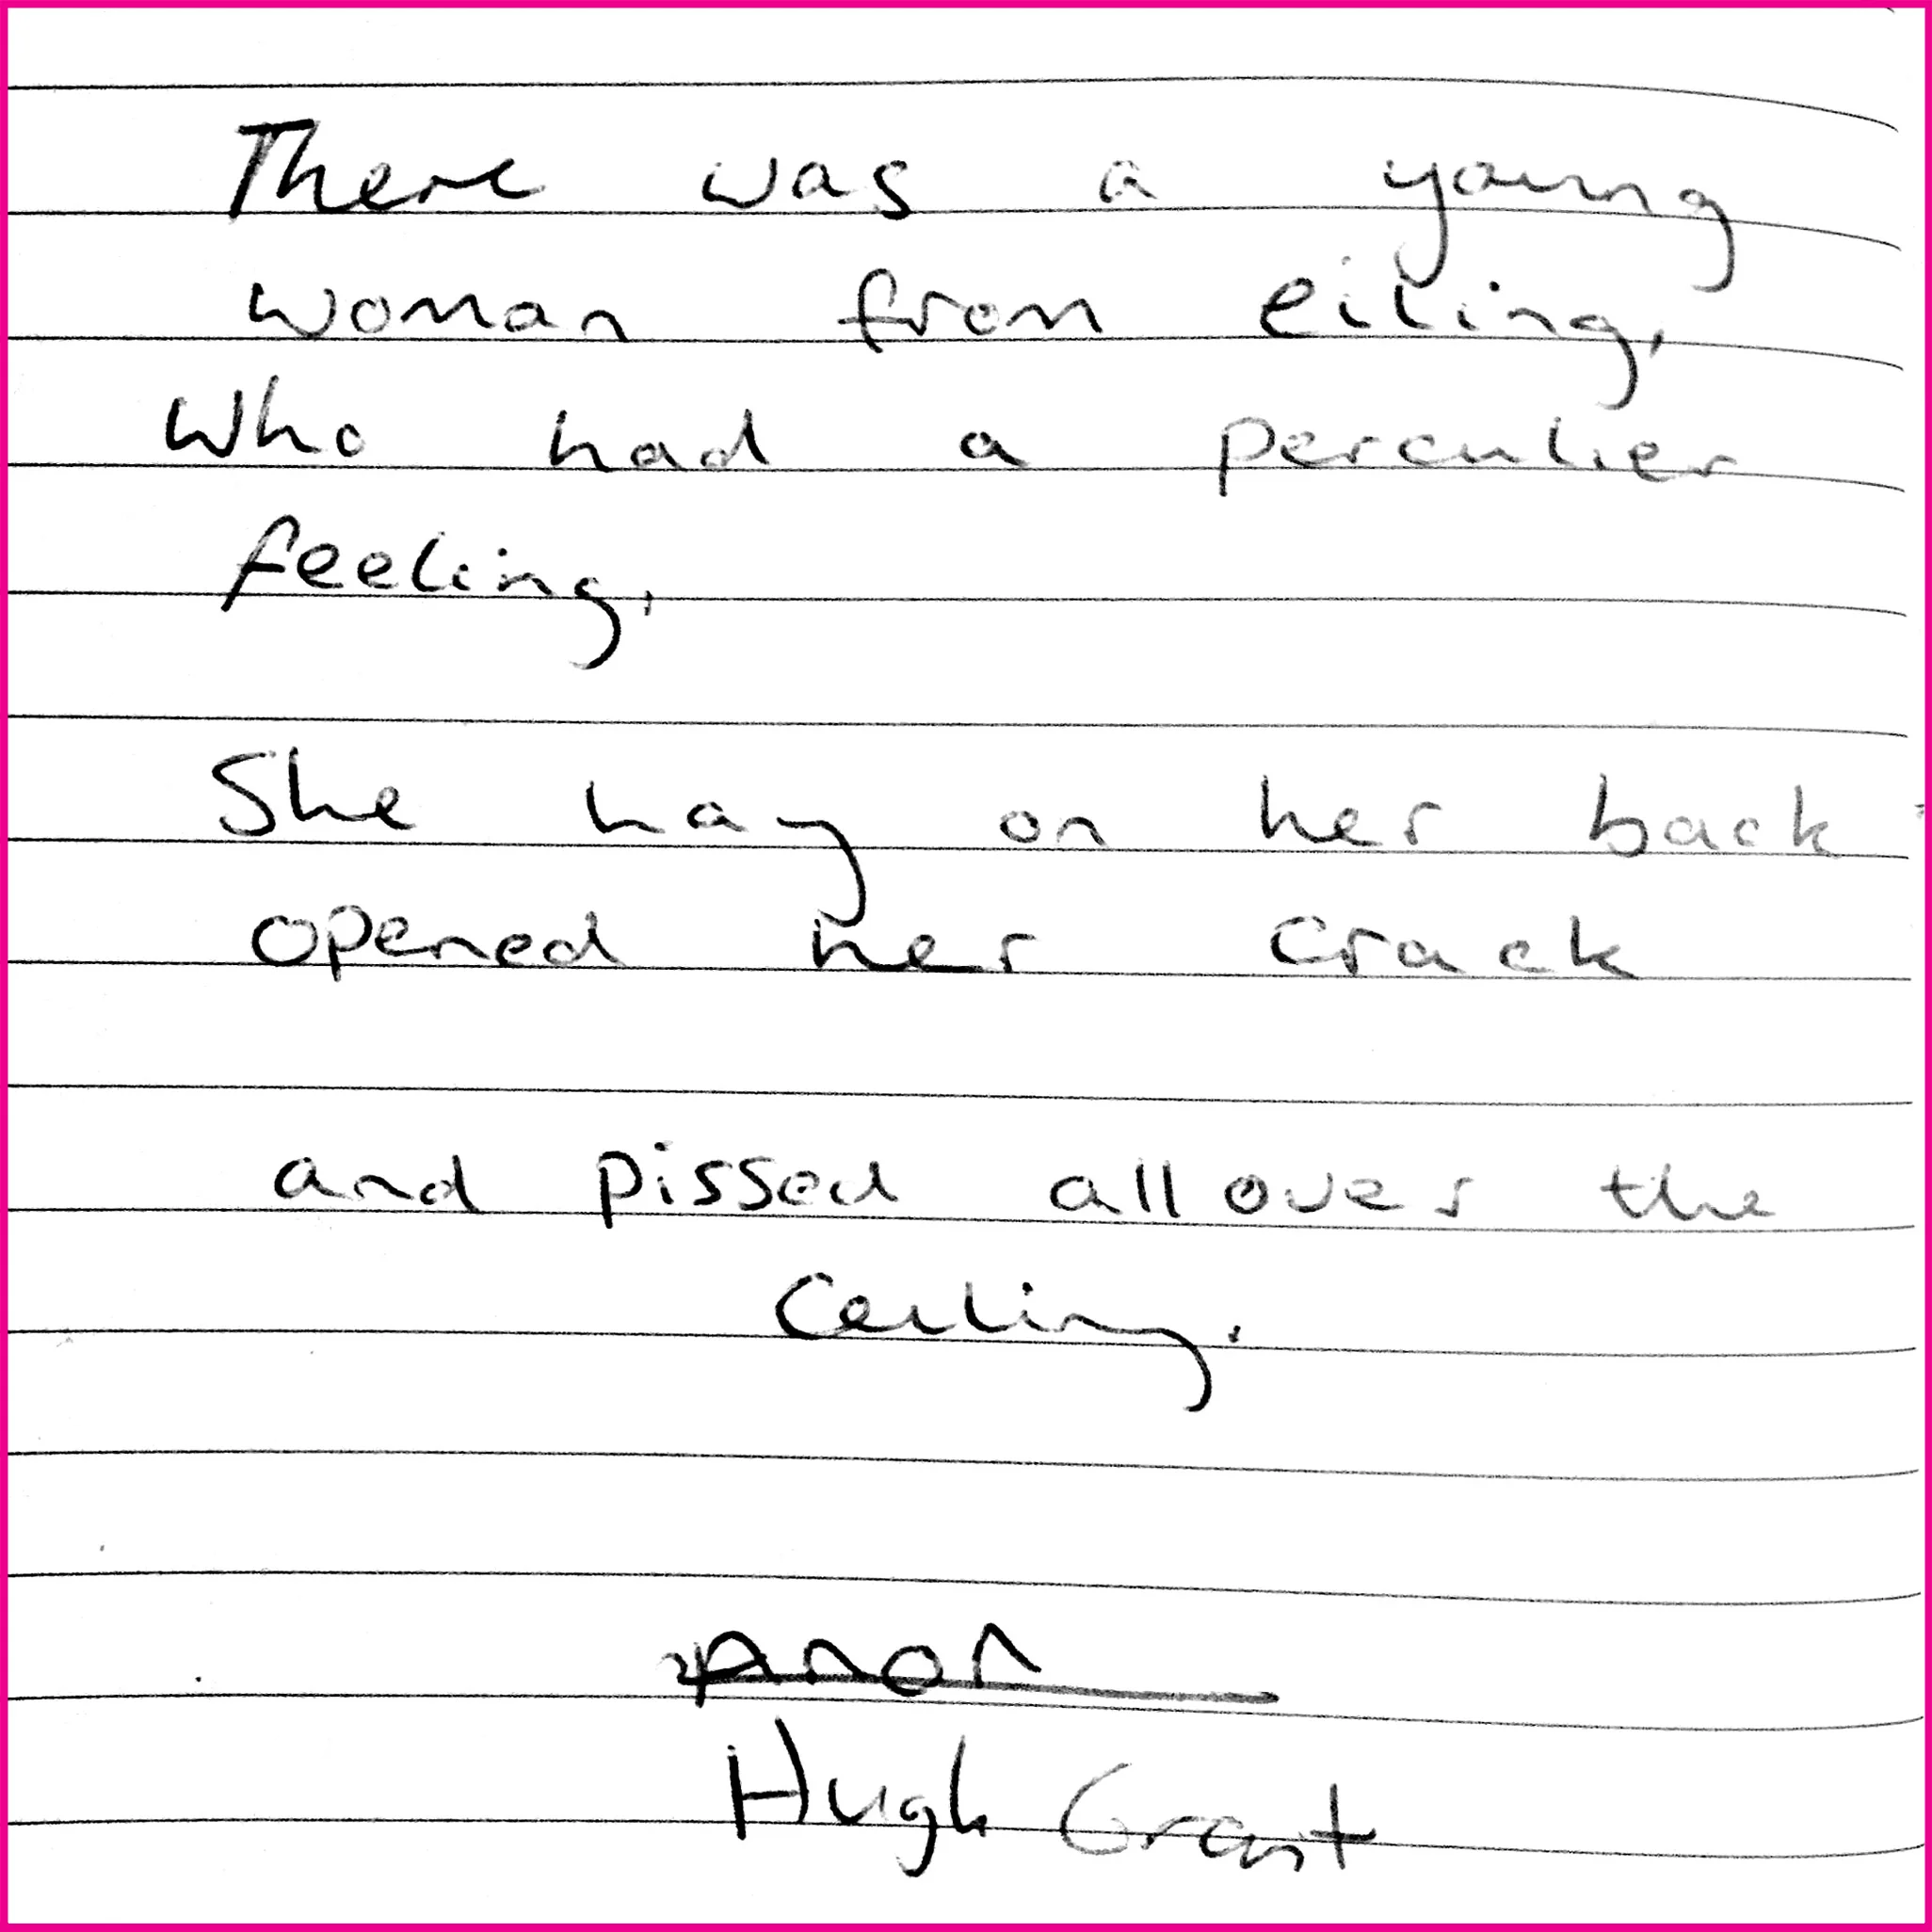 There was a young
woman from eiling,
Who had a perculier
feeling,
She hay on her back
opened her crack
and pissed all over the
Ceiling.
Anon
Hugh Grant